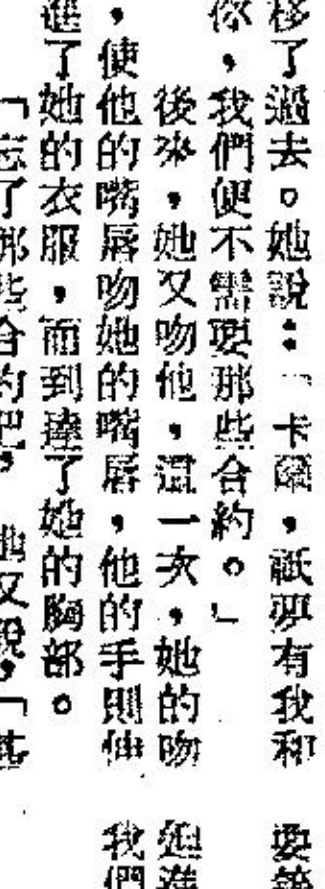 移了過去。她說：「卡爾，祇要有我和
你，我們便不需要那些合約。」
後來，她又吻他，這一次，她的吻
，使他的嘴唇吻她的嘴唇，他的手則伸
進了她的衣服，而到達了她的胸部。
「忘了那些合約吧，」她又說，「
要
她進
我們